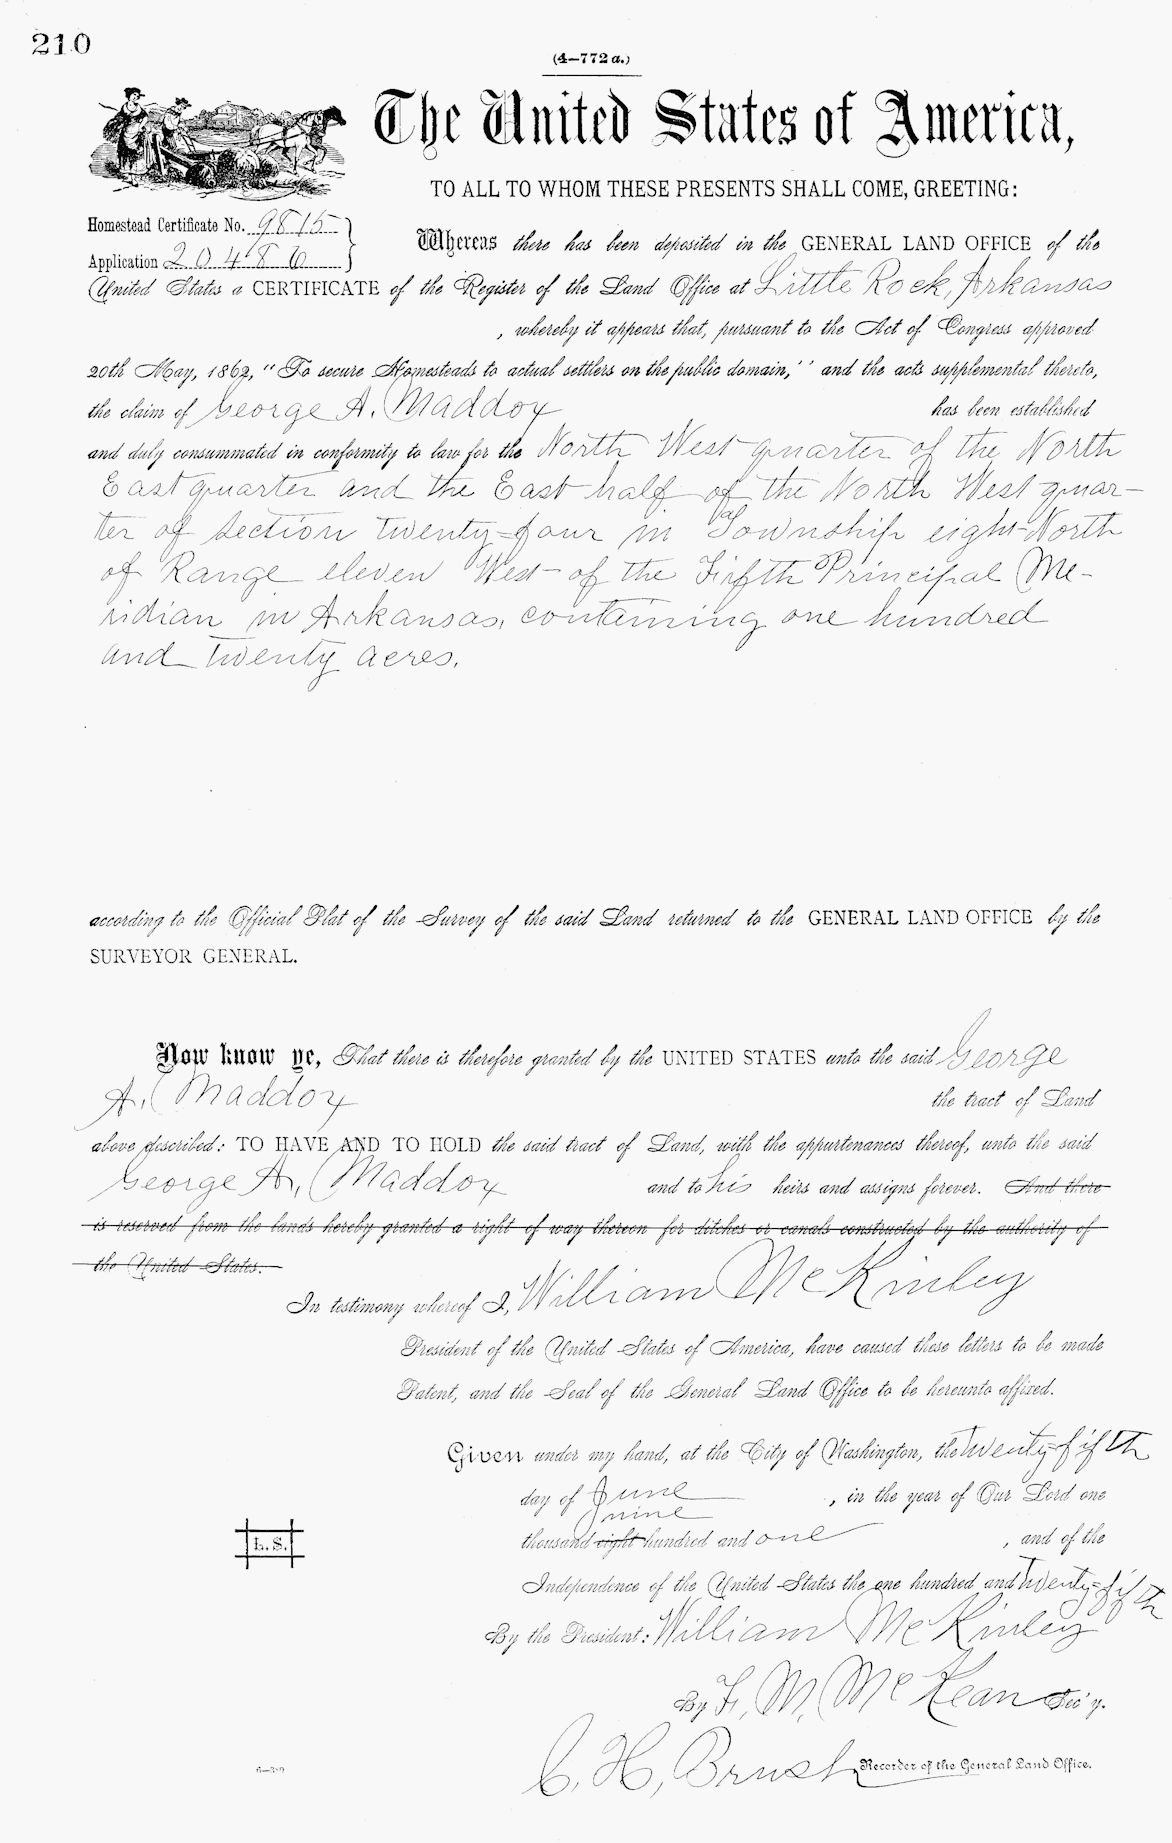 210
(4—772a.)
The United States of America,
TO ALL TO WHOM THESE PRESENTS SHALL COME, GREETING:
Homestead Certificate No. 9815
Application 20486
Whereas there has been deposited in the GENERAL LAND OFFICE of the
United States a CERTIFICATE of the Register of the Land Office at Little Rock, Arkansas
, whereby it appears that, pursuant to the Act of Congress approved
20th May, 1862, "To secure Homesteads to actual settlers on the public domain," and the acts supplemental thereto,
the claim of George A. Maddox has been established
and duly consummated in conformity to law for the North West quarter of the North
East quarter and the East half of the North West quar-
ter of Section twenty-four in Township eight North
of Range eleven West of the Fifth Principal Me-
ridian in Arkansas, containing one hundred
and twenty acres.
according to the Official Plat of the Survey of the said Land returned to the GENERAL LAND OFFICE by the
SURVEYOR GENERAL.
Now know ye, That there is therefore granted by the UNITED STATES unto the said George
A. Maddox the tract of Land
above described: TO HAVE AND TO HOLD the said tract of Land, with the appurtenances thereof, unto the said
George A. Maddox and to his heirs and assigns forever. And there
is reserved from the lands hereby granted a right of way thereon for ditches or canals constructed by the authority of
the United States.
In testimony whereof I, William McKinley
President of the United States of America, have caused these letters to be made
Patent, and the Seal of the General Land Office to be hereunto affixed.
Given under my hand, at the City of Washington, the twenty-fifth
day of June , in the year of Our Lord one
nine
thousand eight hundred and one , and of the
Independence of the United States the one hundred and twenty-fifth
L. S.
By the President: William McKinley
By F. M. McKean Sec'y.
C. H. Brush Recorder of the General Land Office.